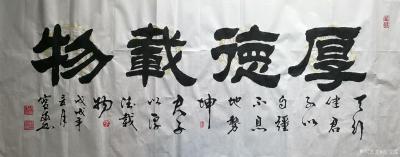 厚德載物
天行
健君
子以
自彊
不息
地勢
坤
君子
以厚
德載
物
戊戌年